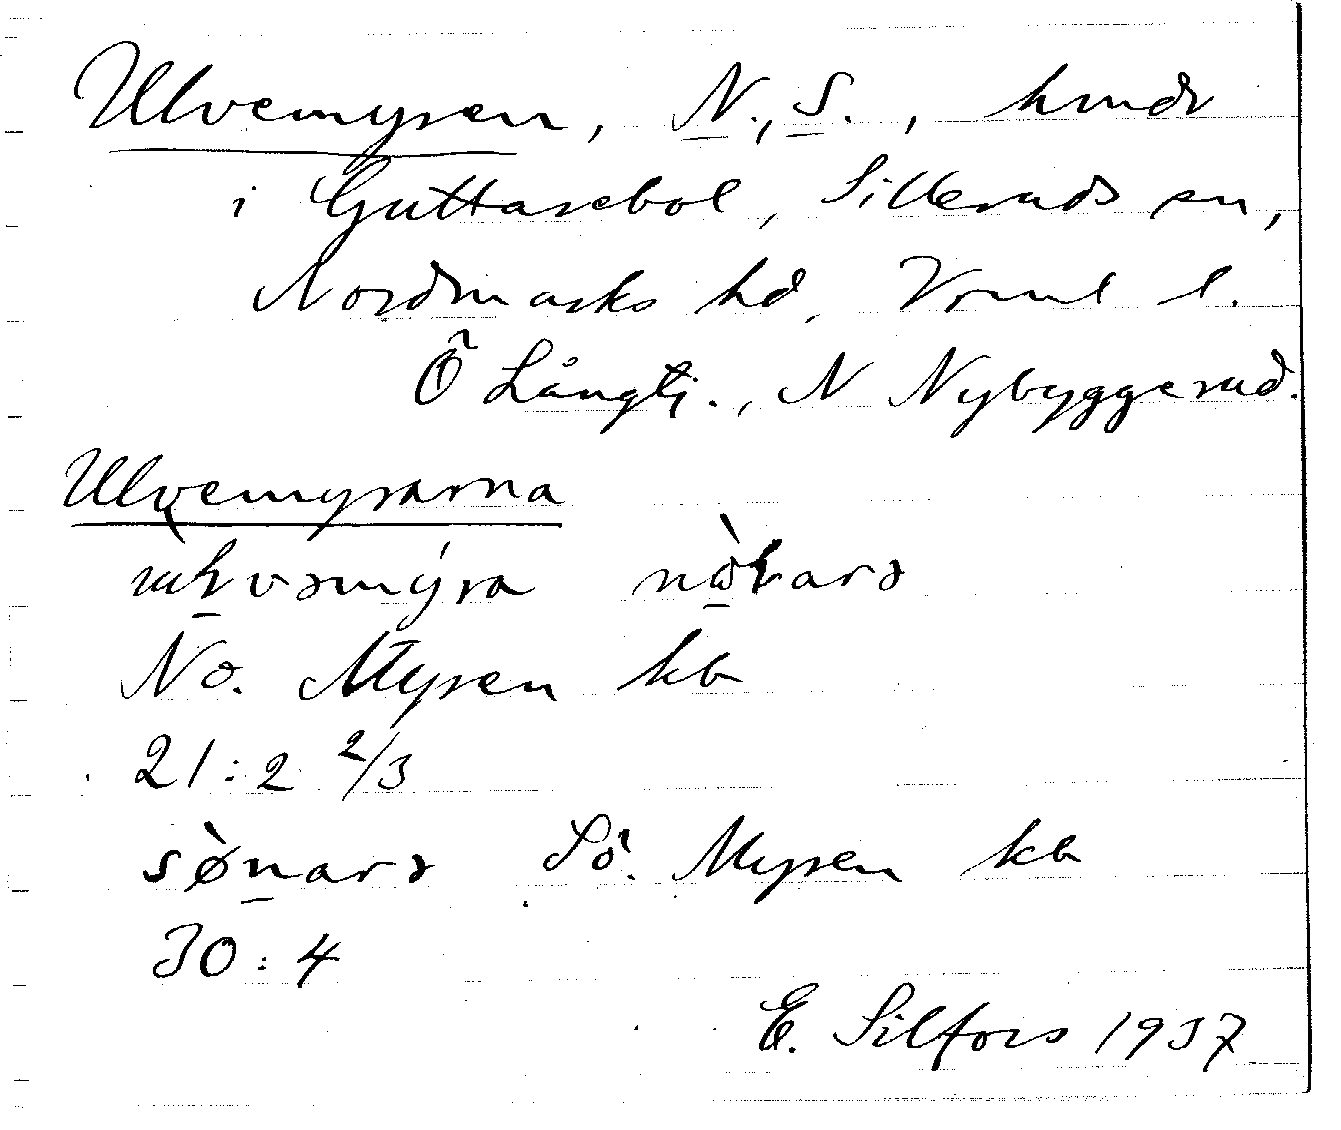 Ulvemyren, N., S., hmdr
i Guttarebol, Silleruds sn,
Nordmarks hd, Vrml l.
Ö Långtj., N Nybyggerud.
Ulvemyrarna
No. Myren kb
21:2 2/3
sø̀narə Sö. Myren kb
30:4
E. Silfors 1937